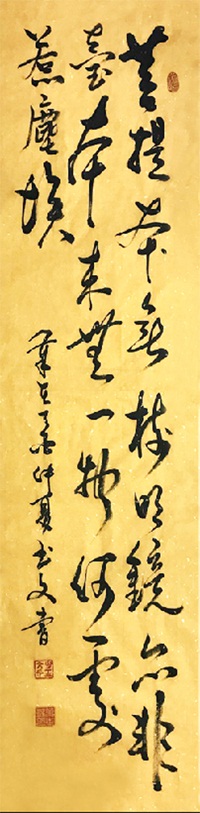 菩提本無樹明鏡亦非
臺本来無一物何處
惹塵埃
仲夏